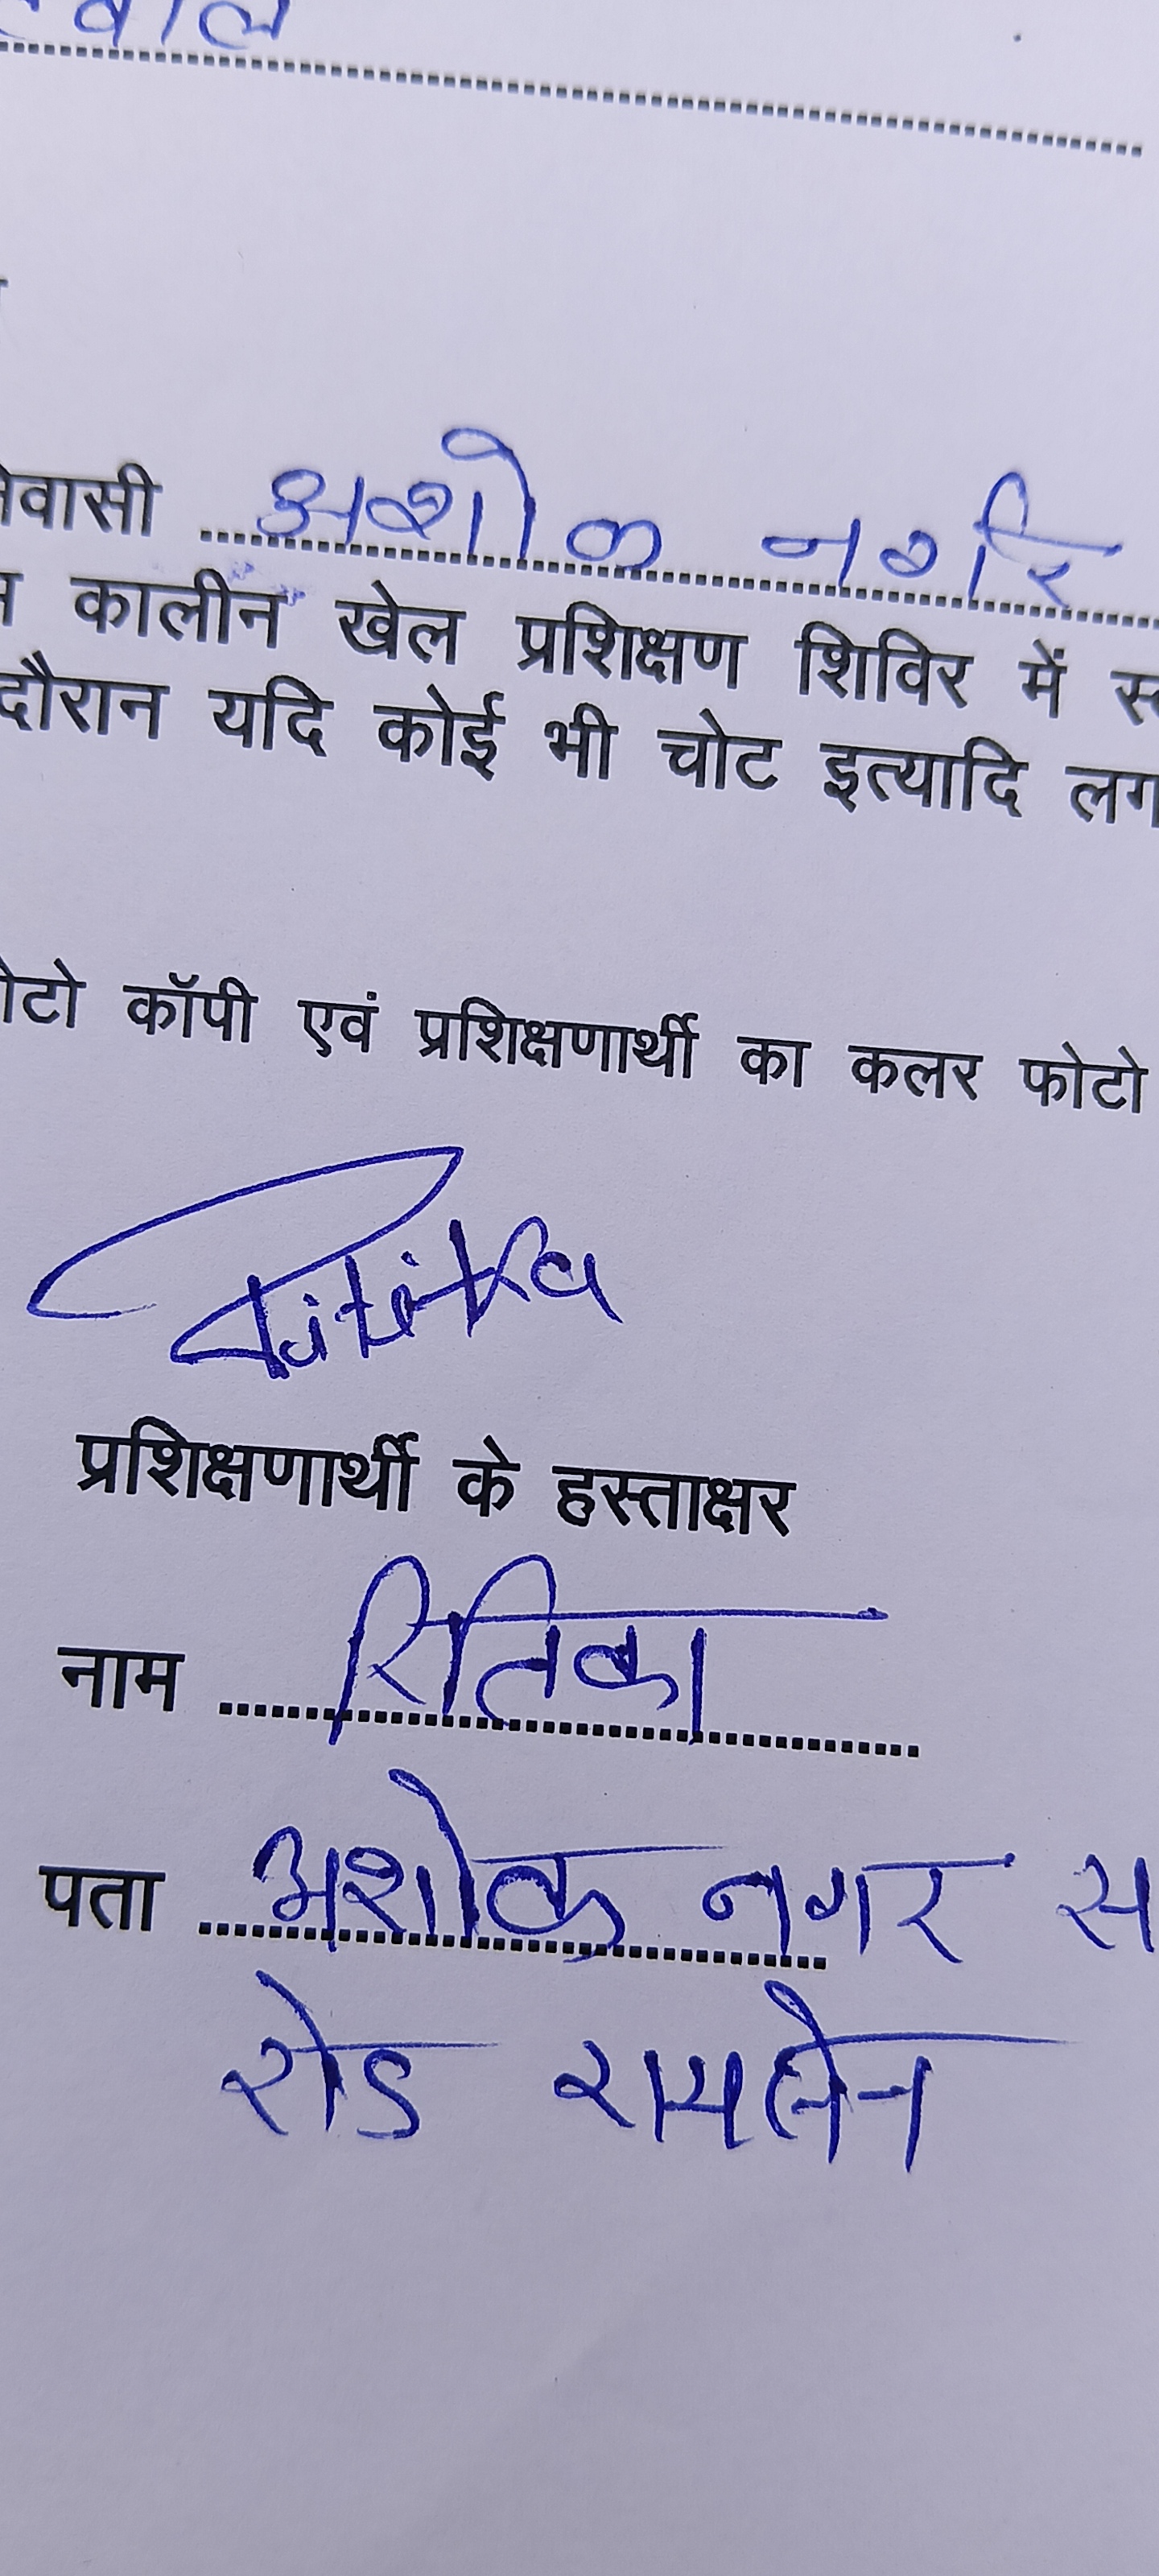 निवासी अशोक नगर
कालीन खेल प्रशिक्षण शिविर में
दौरान यदि कोई भी चोट इत्यादि लग
फोटो कॉपी एवं प्रशिक्षणार्थी का कलर फोटो
Ritika
प्रशिक्षणार्थी के हस्ताक्षर
नाम रितिका
पता अशोक नगर
रोड रायसेन